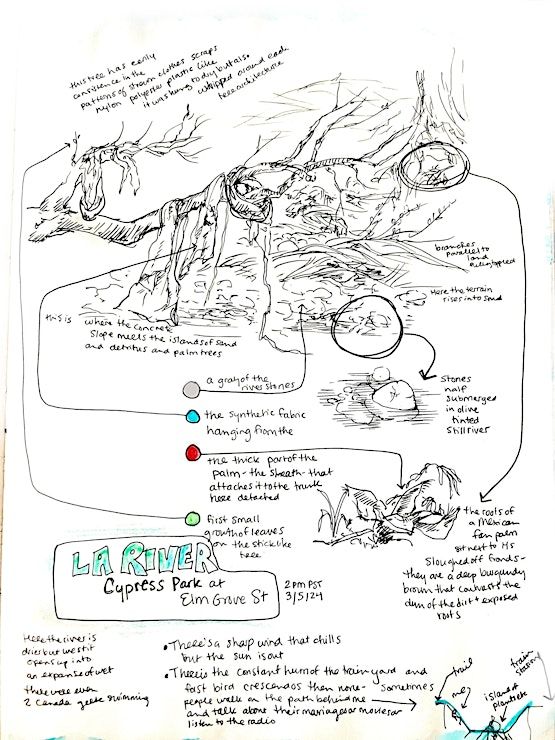 this tree has eerily
consistence in the
patterns of strewn clothes scraps
nylon polyester plastic like
it was hung to dry
whipped around each
tree
branches
parallel to
land
Here the terrain
rises into
this is where the concrete
slope meets the islands of sand
and detritus and palm trees
a gray of the
rives stones
the synthetic fabric
hanging from the
the thick part of the
palm - the sheath - that
attaches it to the trunk
here detached
first small
growth of leaves
on the sticklike
tree
Stones
half
submerged
in olive
tinted
still river
the roots of
a Mexican
fan palm
sit next to its
sloughed off fronds -
they are a deep burgundy
brown that contrasts the
dun of the dirt + exposed
roots
LA RIVER
Cypress Park at
Elm Grove St
2pm PST
3/5/24
Here the river is
drier but west it
opens up into
an expanse of wet
there were even
2 Canada geese swimming
• There's a sharp wind that chills
but the sun is out
• There is the constant hum of the train yard and
fast bird crescendos then none - sometimes
people walk on the path behind me
and talk about their marriages or movies or
listen to the radio
trail
me
train
station
island
plants etc